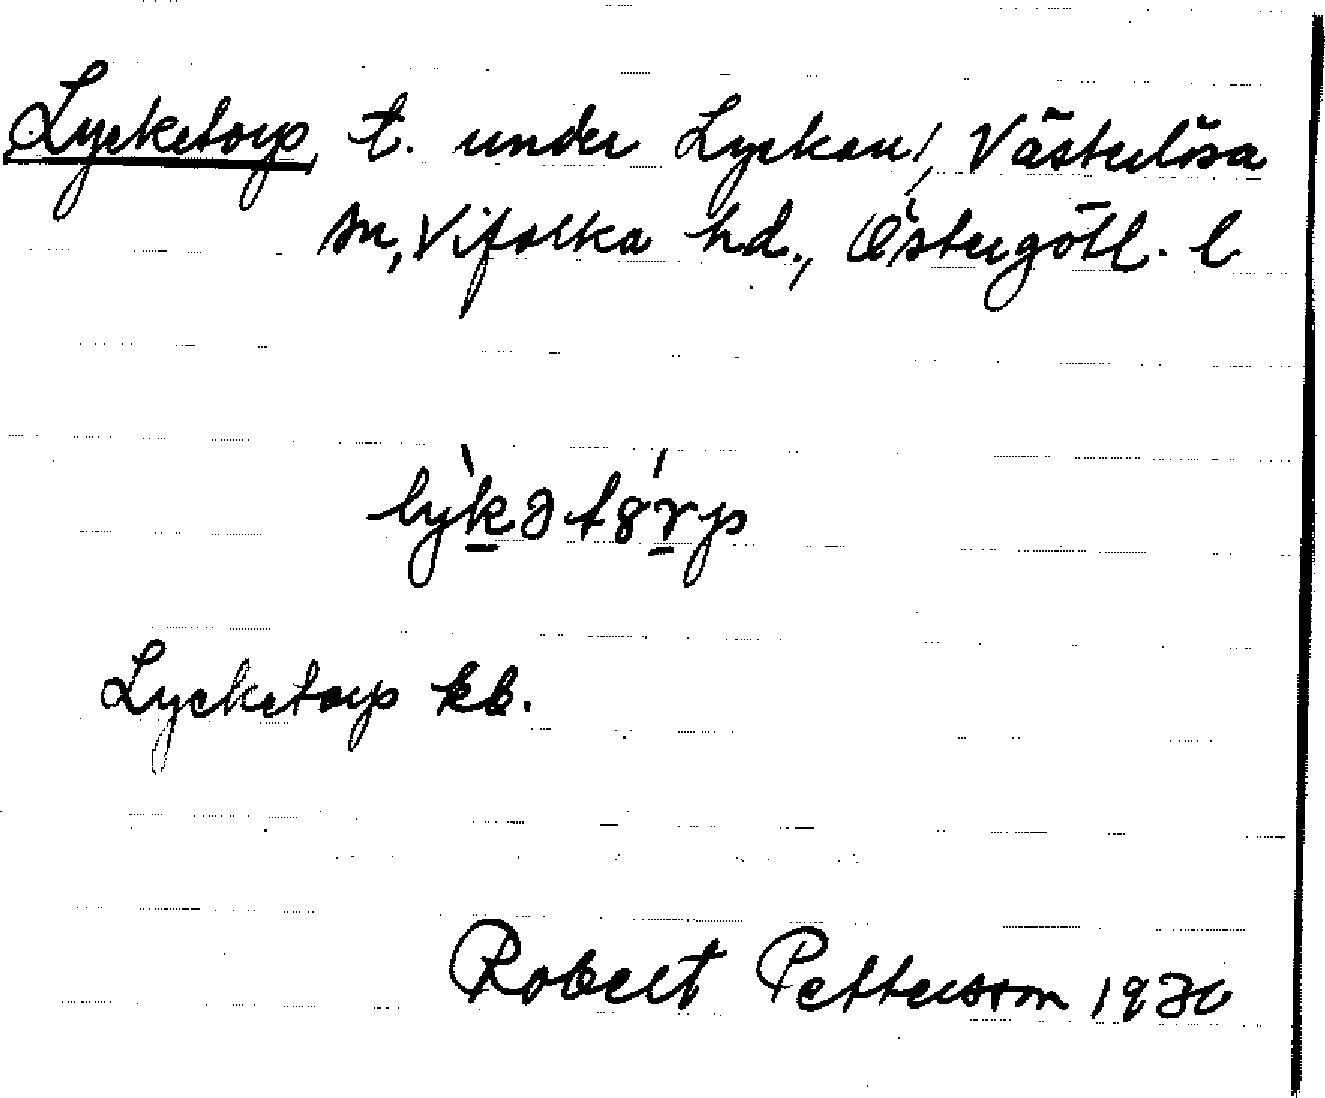 Lycketorp, t. under Lyckan, Västerlösa
sn, Vifolka hd., Östergötl. l
lỳkətȣ́rp
Lycketorp kb.
Robert Pettersson 1930